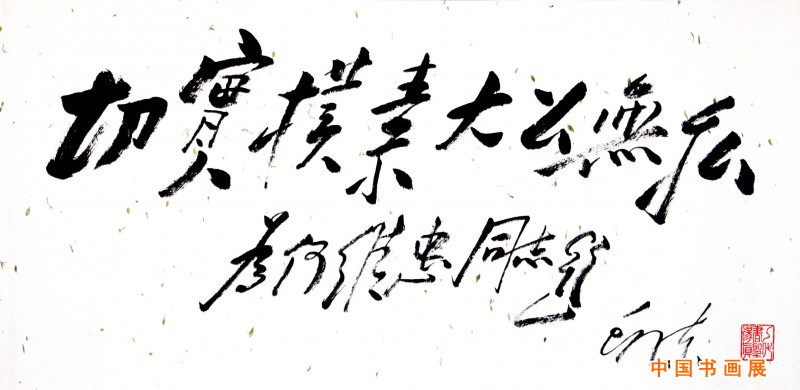 切實樸素大公無私
為何維忠同志題
中国书画展